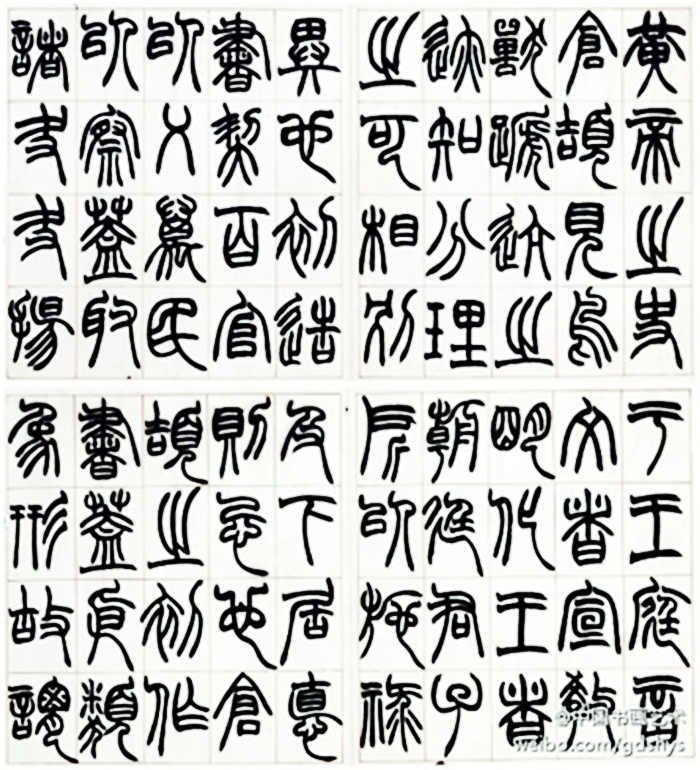 黃帝之史
倉頡見鳥
獸蹏迒之
迹知分理
之可相別
異也初造
書契百官
以乂萬民
以察蓋取
諸夬夬揚
于王庭言
文者宣教
明化王者
朝廷君子
所以施祿
及下居悳
則忌也倉
頡之初作
書蓋依類
象形故謂
@中国书画艺术
weibo.com/gdshys